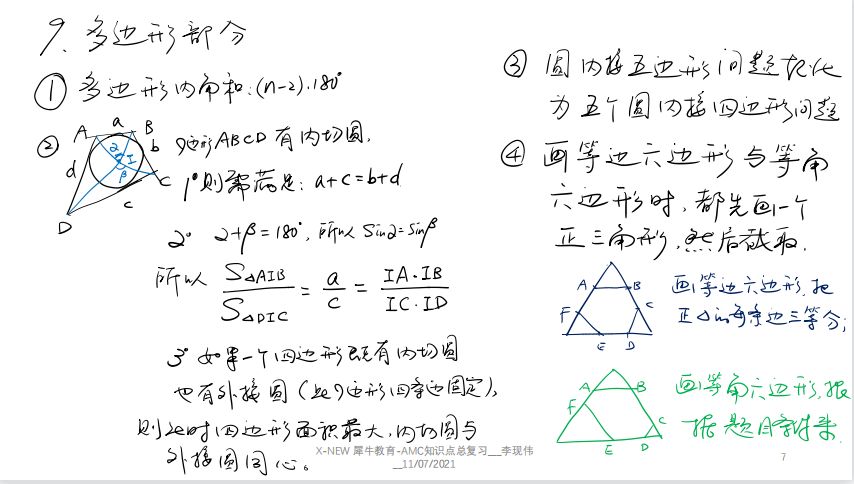 9. 多边形部分
① 多边形内角和:(n-2)·180°
② A a B b C c D d I α β
四边形ABCD有内切圆.
1° 则需满足: a+c=b+d
2° α+β=180°, 所以 sinα=sinβ
所以 S△AIB / S△DIC = a / c = IA·IB / IC·ID
3° 如果一个四边形既有内切圆
也有外接圆(此四边形四条边固定),
则此时四边形面积最大,内切圆与
外接圆同心。
③ 圆内接五边形问题转化
为五个圆内接四边形问题
④ 画等边六边形与等角
六边形时,都先画一个
正三角形,然后截取.
A B C D E F
画等边六边形,把
正△的每条边三等分;
A B C D E F
画等角六边形,根
据题目条件来.
X-NEW 犀牛教育-AMC知识点总复习__李现伟
__11/07/2021
7